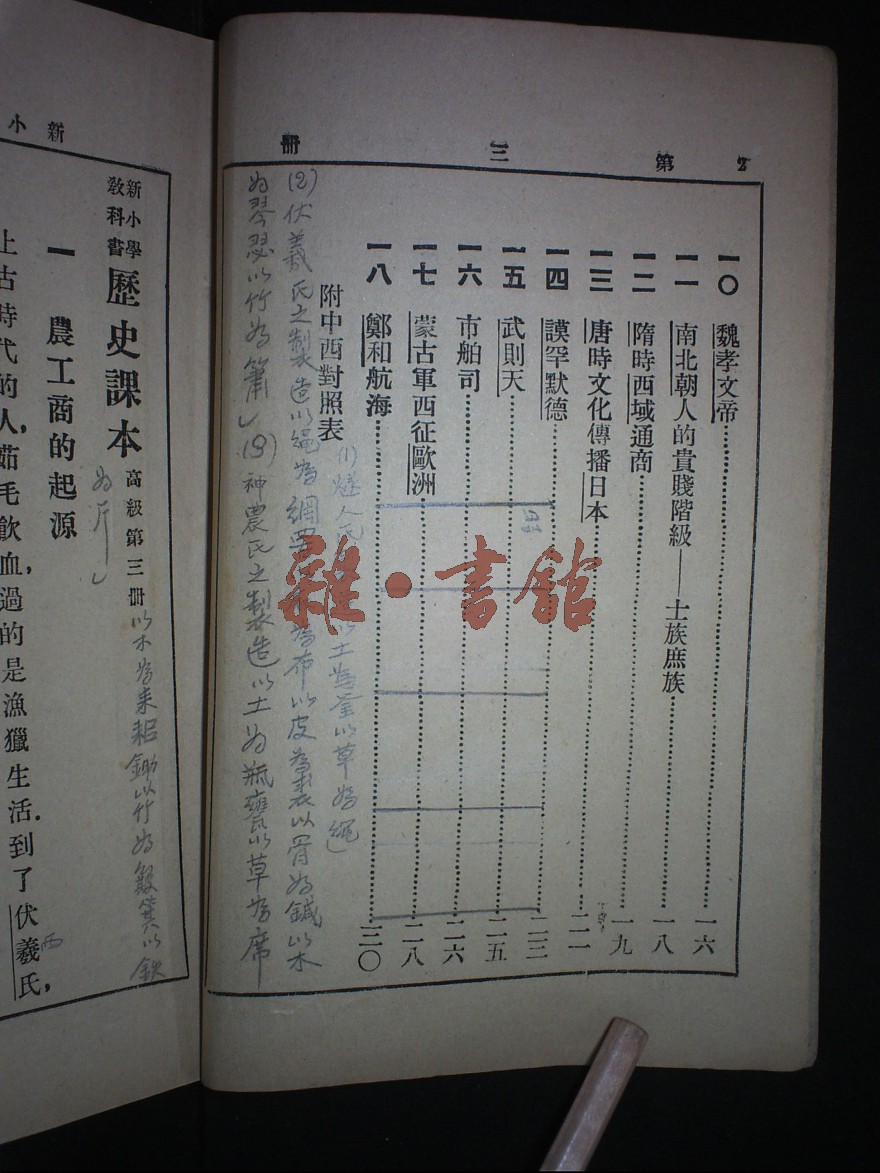 2 第三冊
一〇 魏孝文帝 一六
一一 南北朝人的貴賤階級——士族庶族 一八
一二 隋時西域通商 一九
一三 唐時文化傳播日本 二一
一四 謨罕默德 二三
一五 武則天 二五
一六 市舶司 二六
一七 蒙古軍西征歐洲 二八
一八 鄭和航海 三〇
附中西對照表
(1) 燧人氏 以土為釜以草為繩
(2) 伏羲氏之製造以繩為網罟 為布以皮為裘以骨為鍼以木
為琴瑟以竹為簫 (3) 神農氏之製造以土為瓶甕以草為席
雜·書館
新小
新小學教科書 歷史課本 高級第三冊
以木為耒耜鋤以竹為 箕以鉄
為斤
一 農工商的起源
上古時代的人,茹毛飲血,過的是漁獵生活.到了伏羲氏,
西